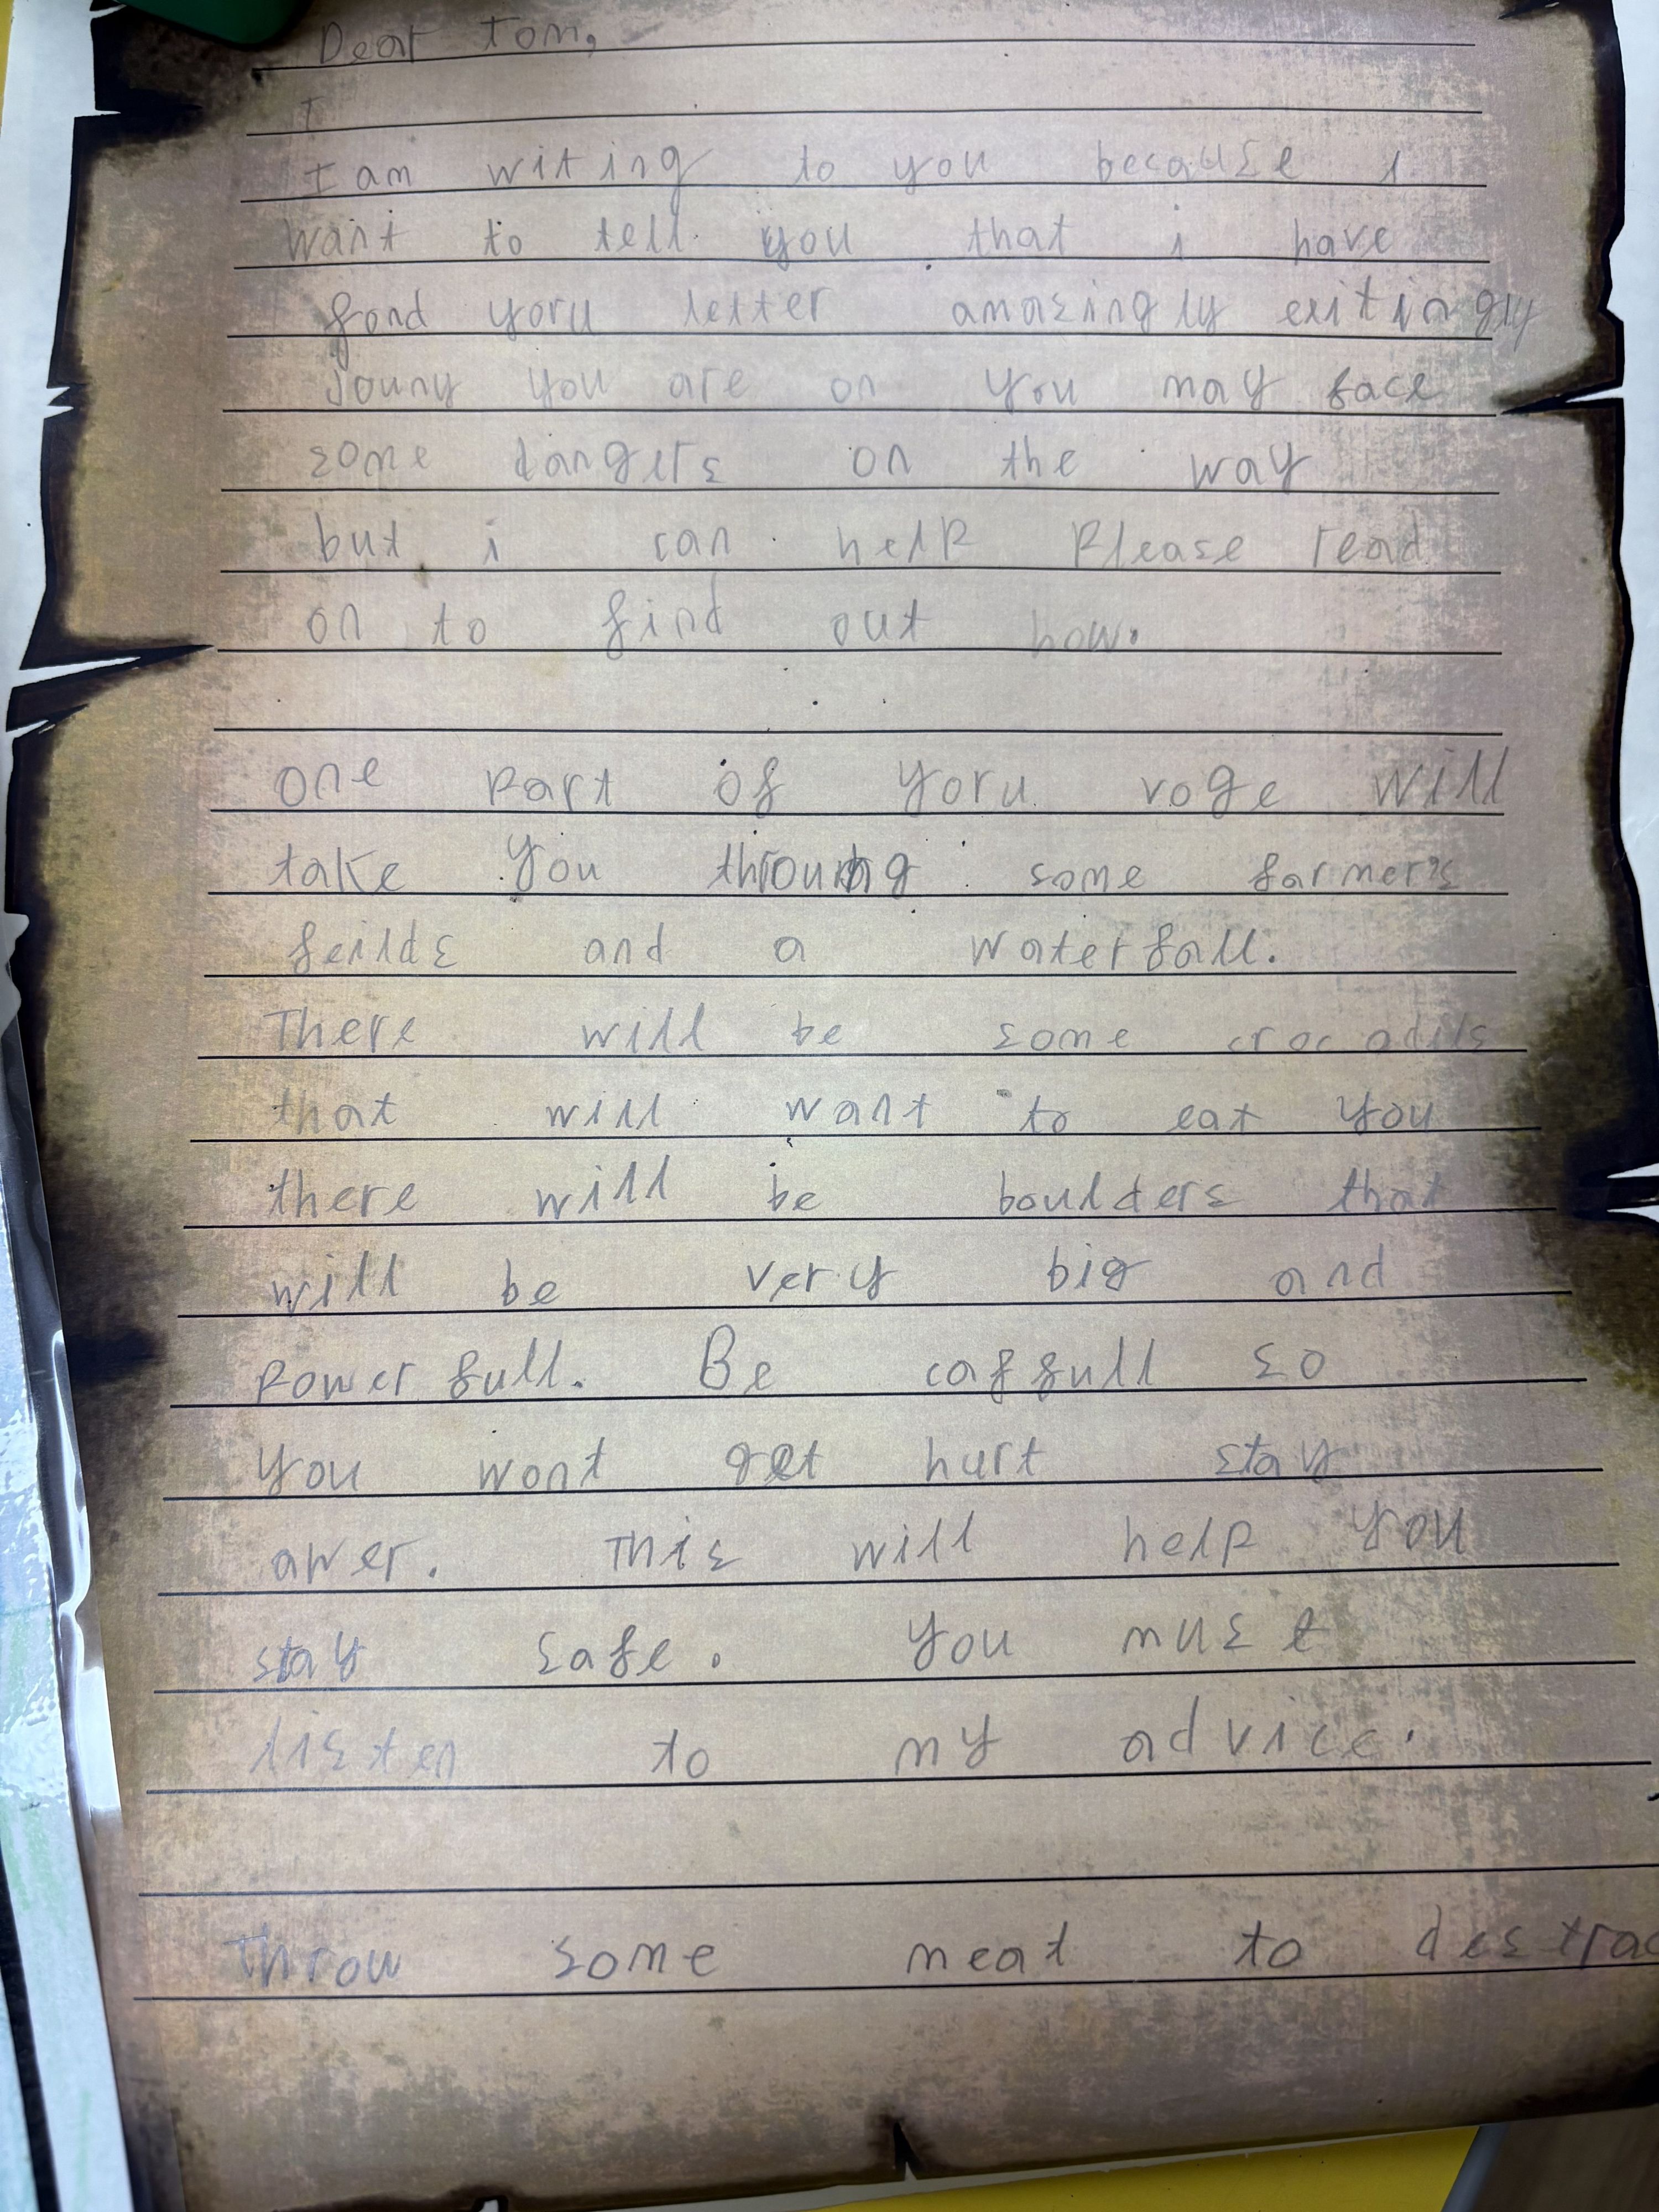 Dear Tom,
I
I am witing to you because i
want to tell you that i have
fond yoru letter amazingly exitingly
jouny you are on you may face
some dangers on the way
but i can help Please read
on to find out how.
one part of yoru voge will
take you throug some farmer's
feilds and a waterfall.
There will be some crocodils
that will want to eat you
there will be boulders that
will be very big and
powerfull. Be caffull so
you wont get hurt stay
awer. This will help you
stay safe. you must
listen to my advice.
Throw some meat to destrac